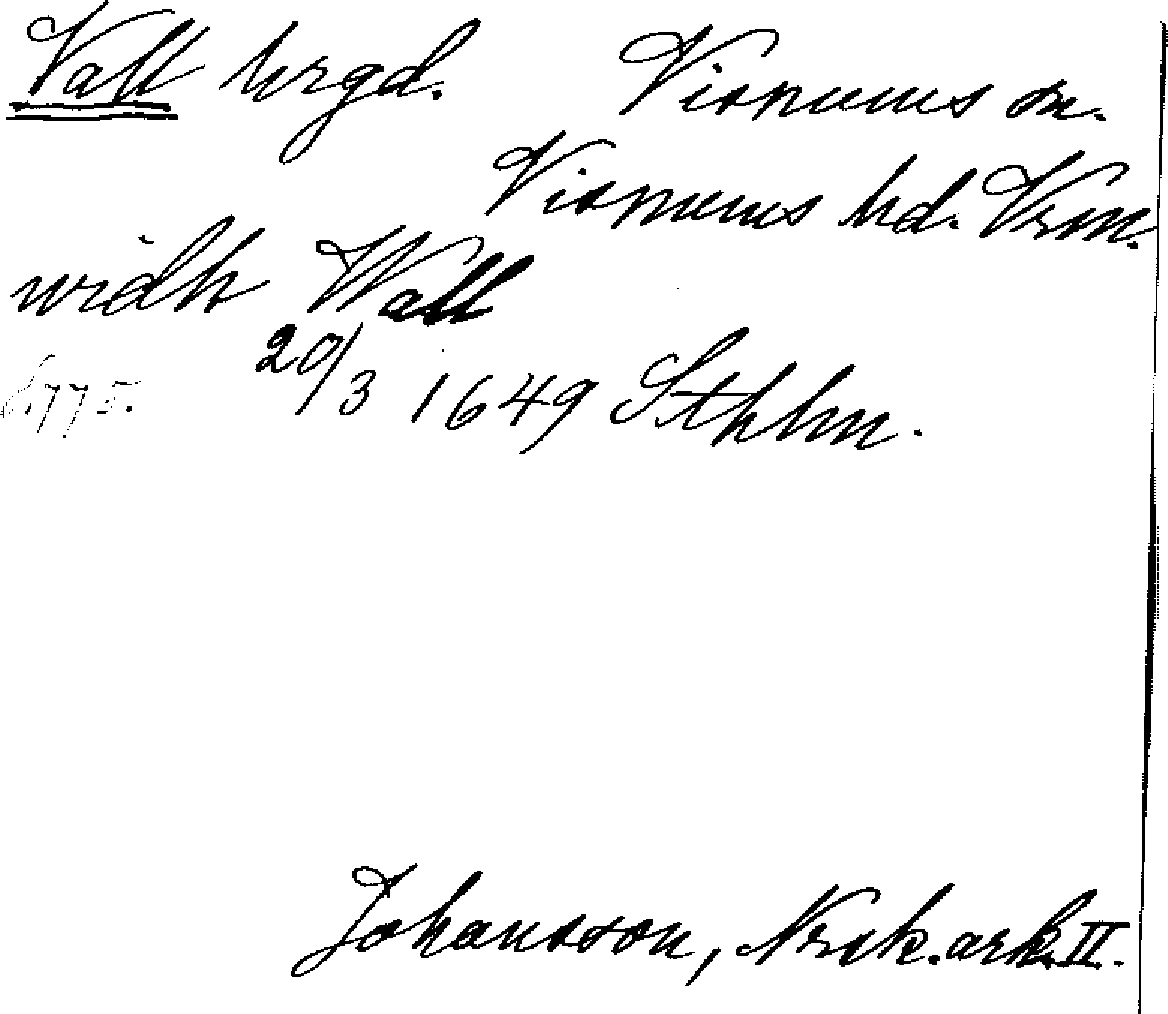 Vall hrgd. Visnums sn.
Visnums hd. Vrm.
widh Wall
20/3 1649 Sthlm.
Johansson, Nrsk. ark. II.